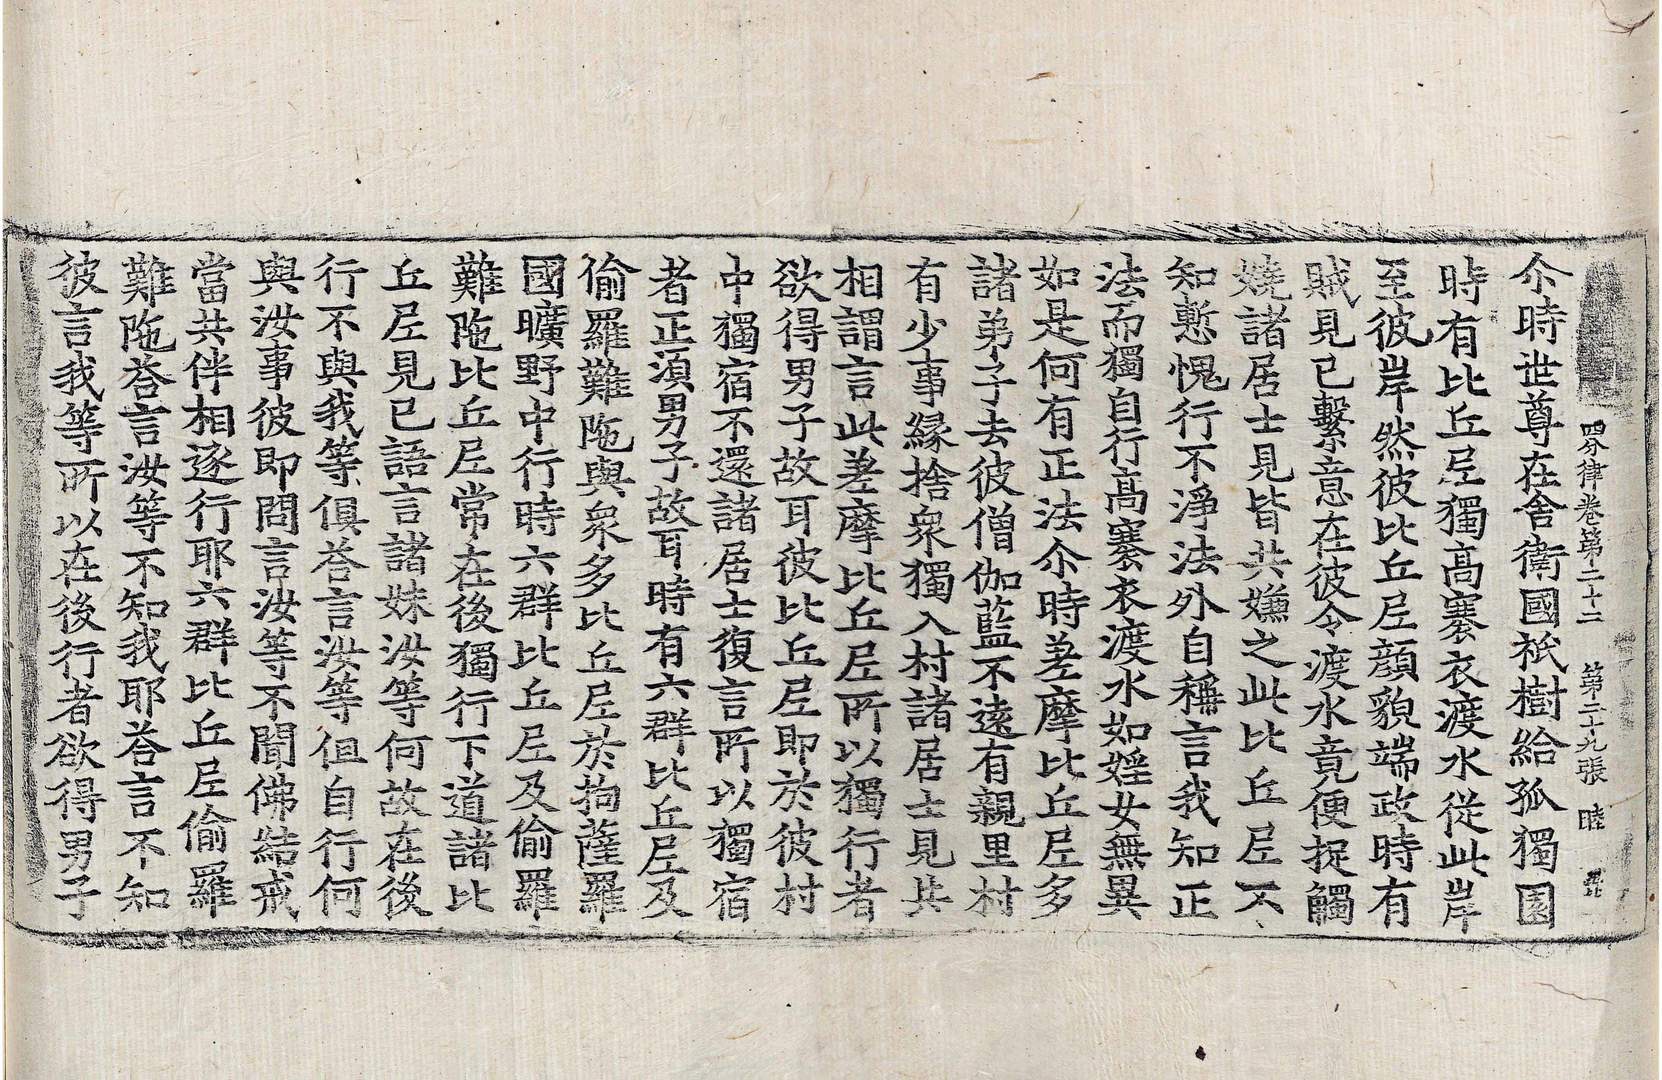 四分律卷第二十二　第二十九張　睦
尒時世尊在舍衛國祇樹給孤獨園
時有比丘尼獨高褰衣渡水從此岸
至彼岸然彼比丘尼顔貌端政時有
賊見已繫意在彼令渡水竟便捉觸
嬈諸居士見皆共嫌之此比丘尼不
知慙愧行不淨法外自稱言我知正
法而獨自行高褰衣渡水如婬女無異
如是何有正法尒時差摩比丘尼多
諸弟子去彼僧伽藍不遠有親里村
有少事緣捨衆獨入村諸居士見共
相謂言此差摩比丘尼所以獨行者
欲得男子故耳彼比丘尼即於彼村
中獨宿不還諸居士復言所以獨宿
者正須男子故耳時有六群比丘尼及
偷羅難陁與衆多比丘尼於拘薩羅
國曠野中行時六群比丘尼及偷羅
難陁比丘尼常在後獨行下道諸比
丘尼見已語言諸妹汝等何故在後
行不與我等俱荅言汝等但自行何
與汝事彼即問言汝等不聞佛結戒
當共伴相逐行耶六群比丘尼偷羅
難陁荅言汝等不知我耶荅言不知
彼言我等所以在後行者欲得男子